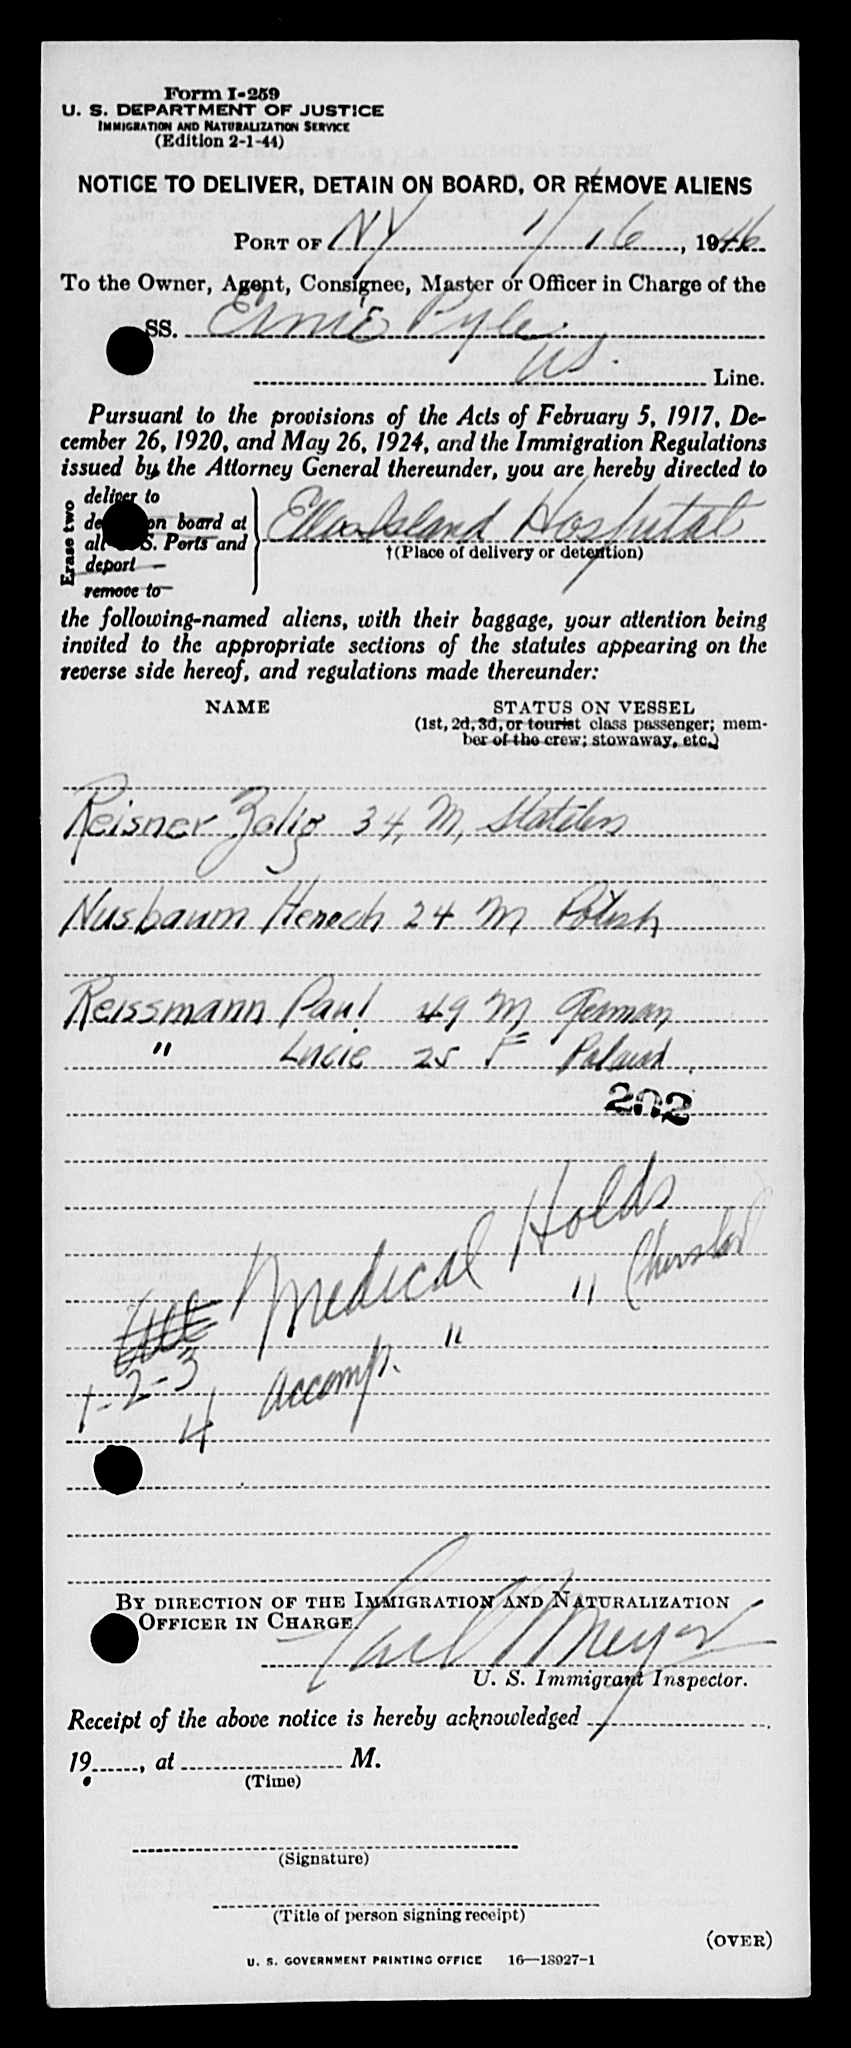 Form I-259
U. S. DEPARTMENT OF JUSTICE
IMMIGRATION AND NATURALIZATION SERVICE
(Edition 2-1-44)
NOTICE TO DELIVER, DETAIN ON BOARD, OR REMOVE ALIENS
PORT OF NY 1/16, 1946
To the Owner, Agent, Consignee, Master or Officer in Charge of the
SS. Ernie Pyle
US. Line.
Pursuant to the provisions of the Acts of February 5, 1917, De-
cember 26, 1920, and May 26, 1924, and the Immigration Regulations
issued by the Attorney General thereunder, you are hereby directed to
Erase two
deliver to
on board at
all U. S. Ports and
deport
remove to
Ellis Island Hospital
†(Place of delivery or detention)
the following-named aliens, with their baggage, your attention being
invited to the appropriate sections of the statutes appearing on the
reverse side hereof, and regulations made thereunder:
NAME STATUS ON VESSEL
(1st, 2d, 3d, or tourist class passenger; mem-
ber of the crew; stowaway, etc.)
Reisner Zalig 34, M, Stateless
Nusbaum Henoch 24 M Polish
Reissmann Paul 49 M German
" Lucie 25 F Poland
202
Medical Holds
1-2-3 "
4 Accomp. "
BY DIRECTION OF THE IMMIGRATION AND NATURALIZATION
OFFICER IN CHARGE.
Carl Meyer
U. S. Immigrant Inspector.
Receipt of the above notice is hereby acknowledged
19, at M.
(Time)
(Signature)
(Title of person signing receipt)
(OVER)
U. S. GOVERNMENT PRINTING OFFICE 16—18927-1